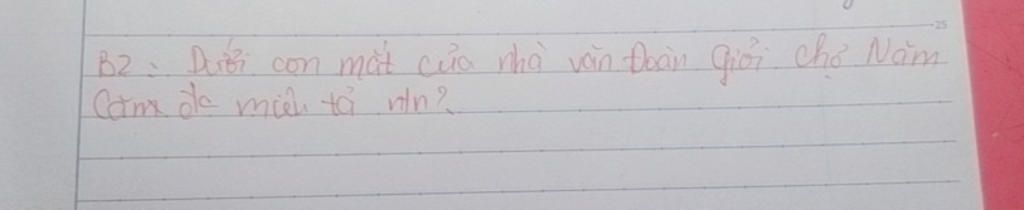 B2: Dưới con mắt của nhà văn Đoàn Giỏi chợ Năm
Căm đc miêu tả ntn?